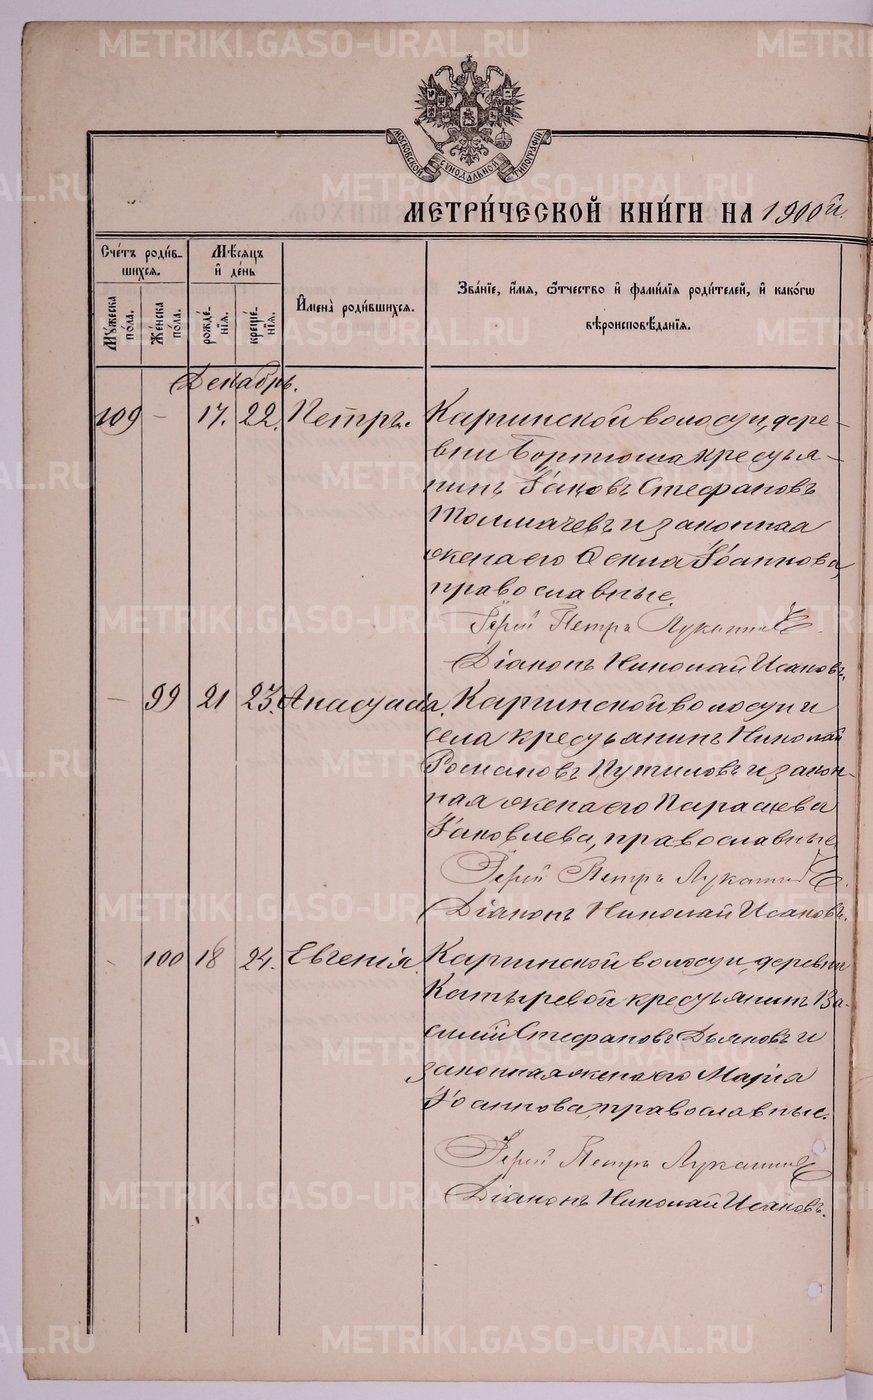 METRIKI.GASO-URAL.RU
МОСКОВСКОЙ СѴНОДАЛЬНОЙ ТИПОГРАФІИ
МЕТРИ́ЧЕСКОЙ КНИ́ГИ НА 1900й.
Сче́тъ роди́вшихся.
Мꙋ́жеска по́ла.
Же́нска по́ла.
Мѣ́сяцъ и҆ де́нь
рожде́нїя.
креще́нїя.
И҆мена̀ роди́вшихся.
Зва́нїе, и҆́мя, ѻ҆́тчество и҆ фами́лїя роди́телей, и҆ како́гѡ вѣроисповѣ́данїя.
Декабрь.
109 - 17. 22. Петръ. Каргинской волости, дере-
вни Бортюша крестья-
нинъ Іаковъ Стефановъ
Толмачевъ и законная
жена его Ксенія Іоаннова,
православные.
Іерей Петръ Лукашинъ
Діаконъ Николай Исаковъ.
- 99 21 23. Анастасія. Каргинской волости и
села крестьянинъ Николай
Романовъ Путиловъ и закон-
ная жена его Параскева
Іаковлева, православные
Іерей Петръ Лукашинъ
Діаконъ Николай Исаковъ.
- 100 18 24. Евгенія. Каргинской волости, деревни
Катыревой крестьянинъ Ва-
силій Стефановъ Дьяковъ и
законная жена его Марія
Іоаннова, православные.
Іерей Петръ Лукашинъ
Діаконъ Николай Исаковъ.